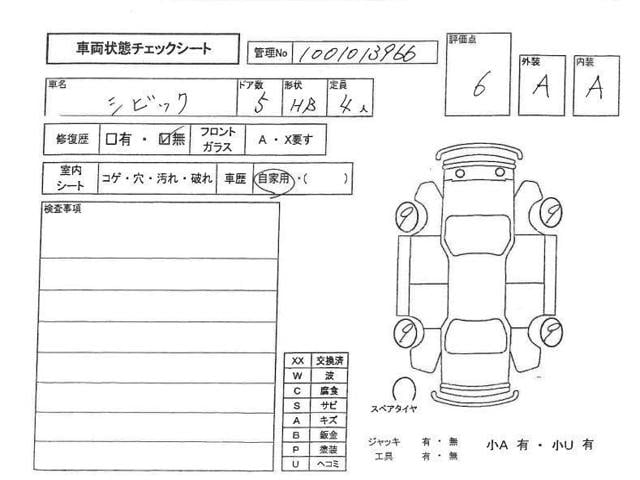 車両状態チェックシート
管理No 1001013966
評価点 6
外装 A
内装 A
車名 シビック
ドア数 5
形状 HB
定員 4人
修復歴 □有・☑無
フロントガラス A・X要す
室内シート コゲ・穴・汚れ・破れ
車歴 自家用・( )
検査事項
9 9
9 9
XX 交換済
W 波
C 腐食
S サビ
A キズ
B 鈑金
P 塗装
U ヘコミ
スペアタイヤ
ジャッキ 有・無
工具 有・無
小A 有・小U 有